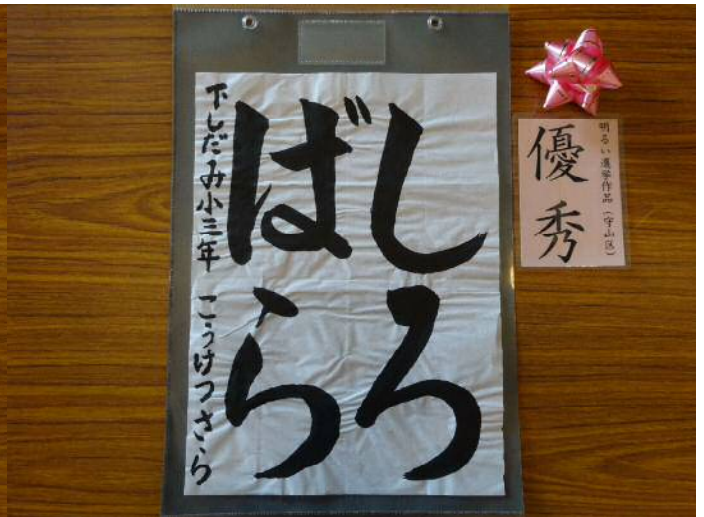 しろ
ばら
下しだみ小三年 こうけつさら
明るい選挙作品(守山区)
優秀